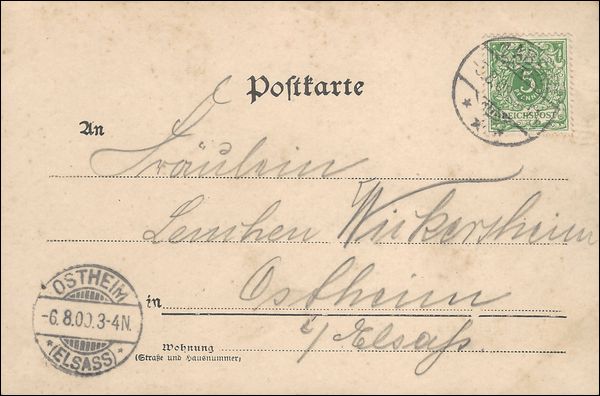 Postkarte
5
PFENNIG
REICHSPOST
An
Fräulein
Lenchen Wickersheim
in Ostheim
i/Elsaß
Wohnung
(Straße und Hausnummer)
OSTHEIM
-6.8.00.3-4N.
* (ELSASS) *